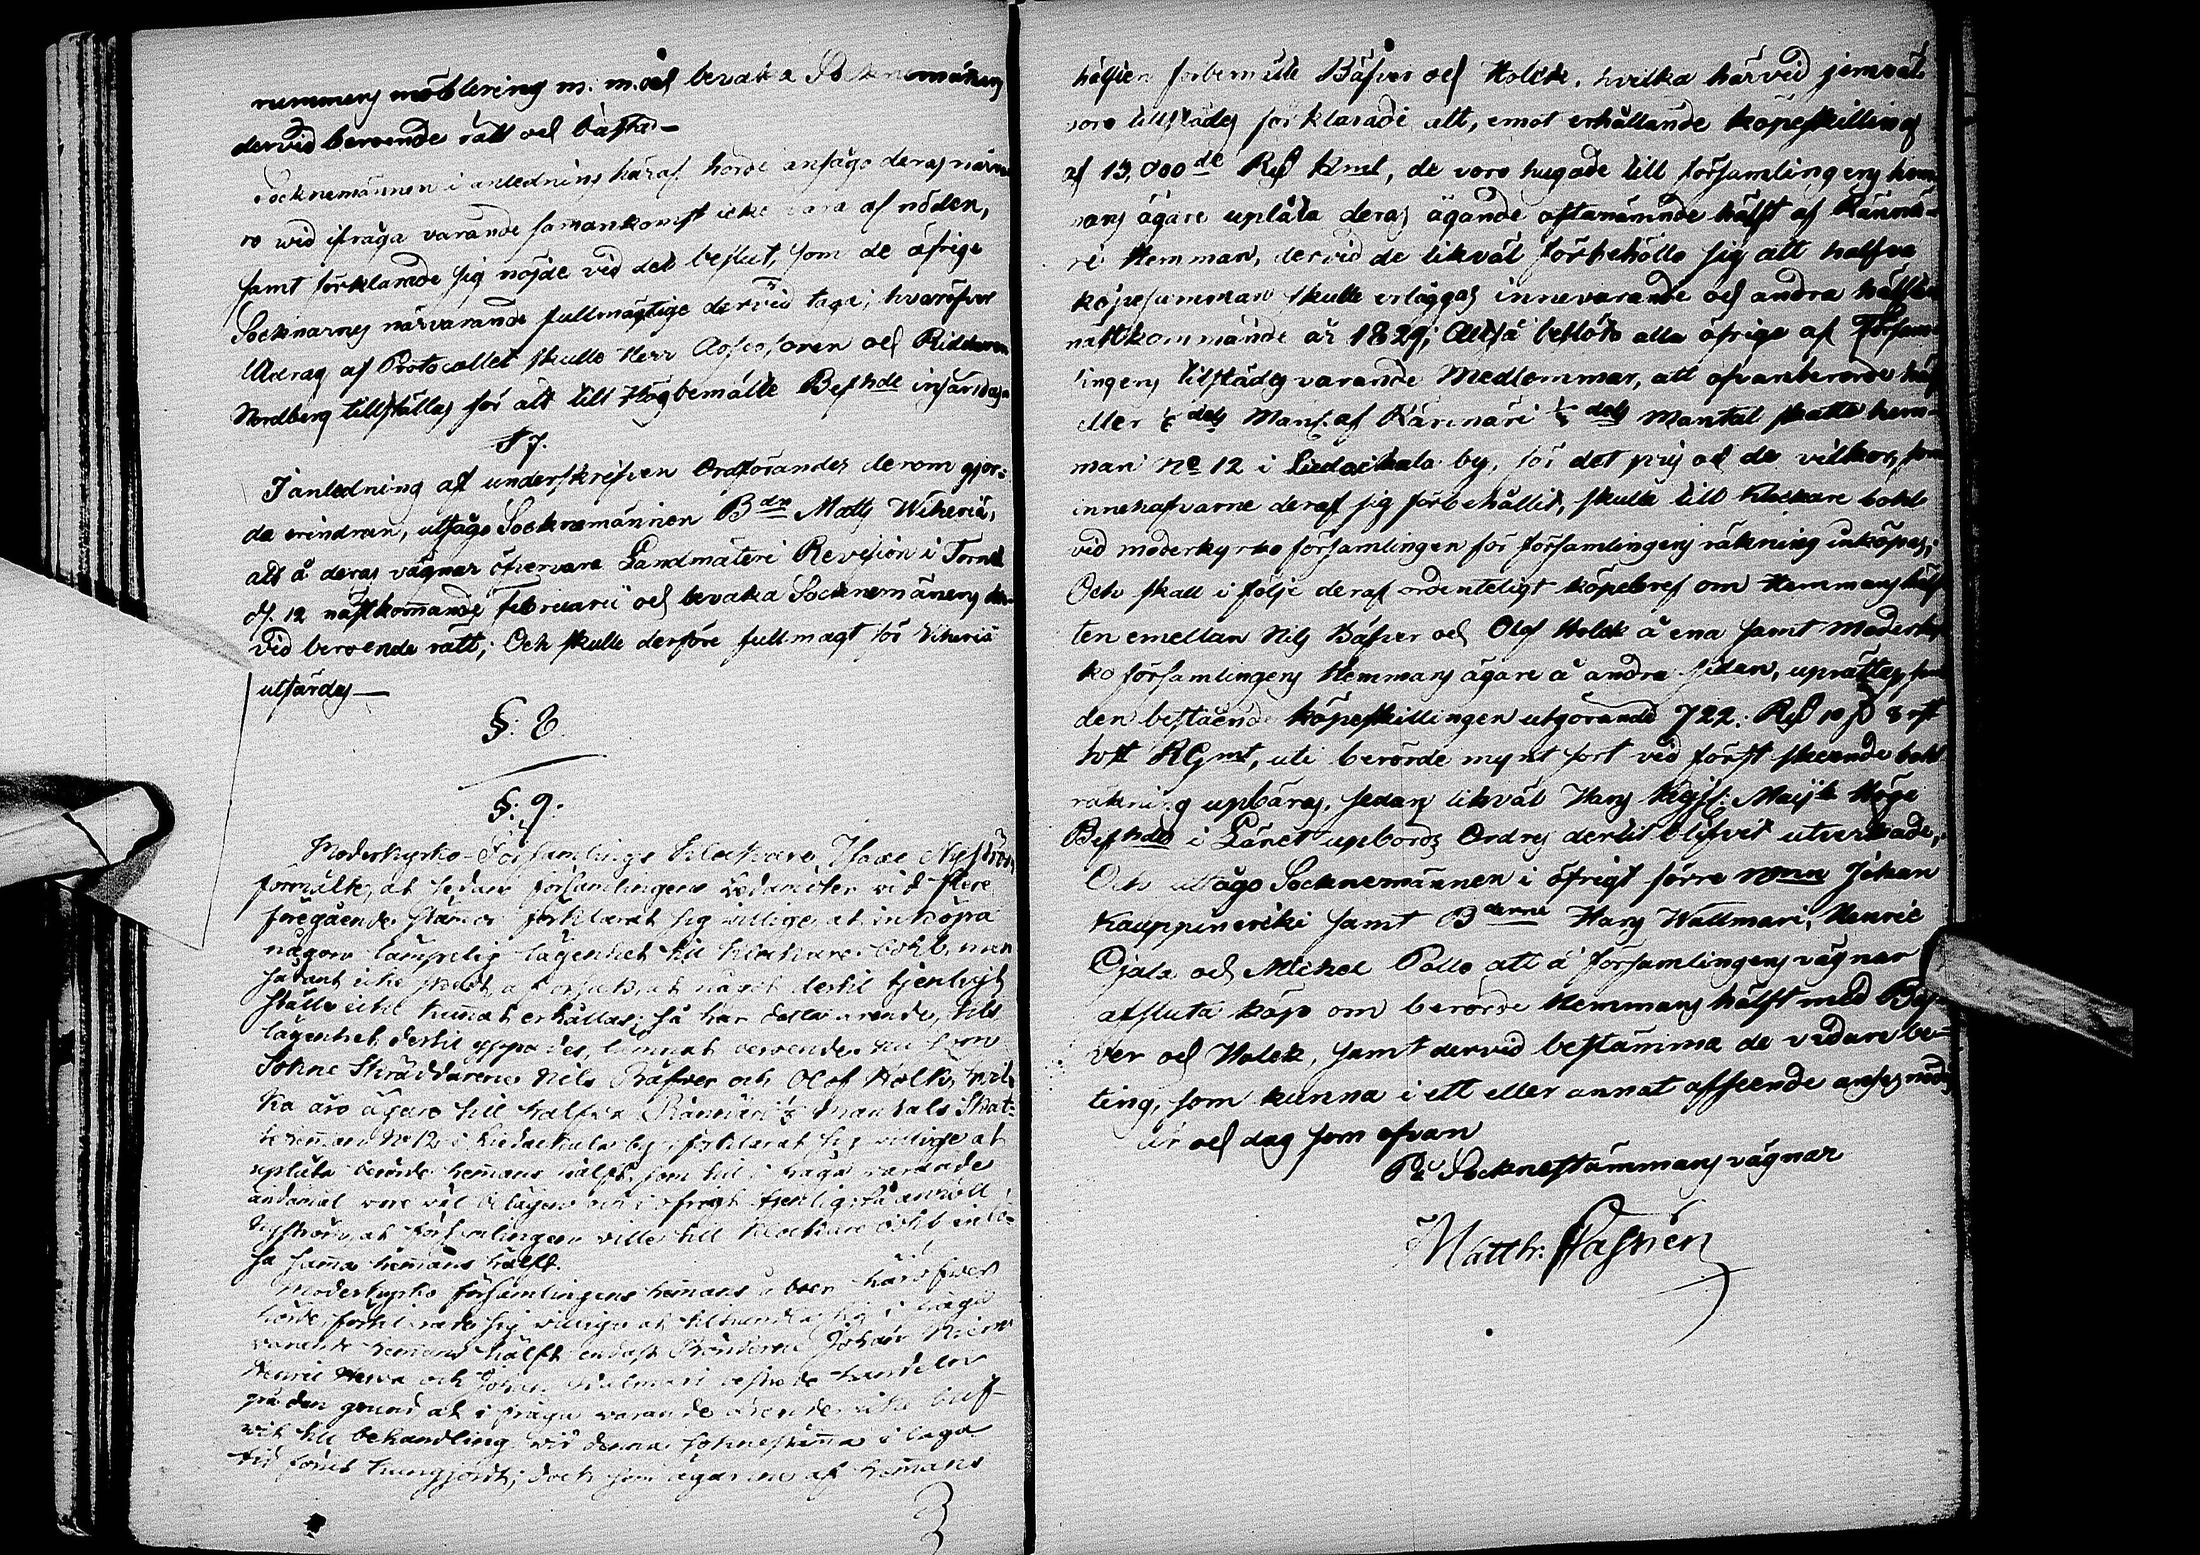 rummens möblering m. m. och bevaka Socknemännens
dervid beroende rätt och bästa—
Socknemännen i anledning häraf hörde ansågo deras närva
ro wid ifråga varande samankomst icke vara af nöden,
samt förklarade sig nöjde vid det beslut, som de öfrige
Socknarnes närvarande fullmägtige dervid taga; hvaröfver
Utdrag af Protocollet skulle Herr Assessoren och Riddaren
Nordberg tillställas för att till Högbemälte Befhde insändas
§ 7.
I anledning af underskrefven Ordförandes derom gjor-
da erindran, utsågo Socknemännen Bdn Matts Wiheriä,
att å deras vägnar öfvervara Landmäteri Revision i Torneå
d. 12 nästkommande Februarii och bevaka Socknemännens der-
vid beroende rätt; Och skulle derföre fullmagt för Viheriä
utfärdas—
§. 8.
§. 9.
Moderkyrko-Församlings Klockare, Isaac Nyström
förmälte, at sedan församlingens Ledamöter vid flere
föregående Stämmor förklarat sig willige at inköpa
någon lämpelig lägenhet till Klockare bohl, men
sådant icke skedt, a orsak, at något dertil tjenligt
ställe icke kunnat erhållas; så har detta ärende, tils
lägenhet dertil yppades, lämnat beroende till
Sokne Skräddarene Nils Bäfver och Olof Holck, hvil-
ka äro ägare till halfva Rännäri ⅓ mantals Skat-
tehemman No 12 i Liedackala by, förklarat sig willige at
upplåta berörde hemmans hälft, som til i fråga varande
ändamål vore väl belägen och i öfrigt tjenlig; så anhöll
Nyström, at Församlingen ville till Klockare bohl inlö-
sa samma hemmans hälft.
Moderkyrko församlingens hemmans åboer häröfwer
hörde, förklarade sig willige at tilhandla sig i fråga
varande hemmans hälft, endast Bönderne Johan
Henric Herva och Johan bestredo handelen
på den grund, at i fråga varande ärende icke blif-
wit till behandling wid denna Soknestämma i laga
tid förut kungjordt; doch som ägarene af hemmans
hälften förbemälte Bäfver och Holck, hvilka härvid jemväl
voro tillstädes förklarade att, emot erhållande köpeskilling
af 13,000de Rd Kmt, de voro hugade till församlingens hem-
mans ägare upläta deras ägande oftanämnde hälft af Rännä-
ri Hemman, dervid de likväl förbehöllo sig att halfva
köpesumman skulle erläggas innevarande och andra hälften
nästkommande år 1829; Altså beslöto alla öfrige af Försam-
lingens tillstädes varande Medlemmar, att ofvanberörde hälft
eller ⅙ dels Mant. af Rännäri ⅓ dels Mantal skatte hem-
man No 12 i Liedackala by, för det pris och de vilkor, som
innehafvarne deraf sig förbehållit, skulle till Klockare bohl
vid moderkyrko församlingen för församlingens räkning inköpas;
Och skall i följe deraf ordenteligt köpebref om Hemmans hälf-
ten emellan Nils Bäfver och Olof Holck å ena samt Moderkyr-
ko församlingens Hemmans ägare å andra sidan, uprättas, samt
den bestående köpeskillingen utgörande 722. Rd 10 s 8 rst
hvt RGmt, uti berörde mynt fort vid först skeende
räkning upbäras, sedan likväl Hans Kejs. Maijts Höge
Befhdes i Länet upbörds Ordres dertil blifvit utverkade,
Och utsågo Socknemännen i öfrigt förre Nmn Johan
Kauppinerki samt Bderne Hans Wallmari, Henric
Ojala och Michel Pallo att å församlingens vägnar
afsluta köp om berörde Hemmans hälft med Bäf-
ver och Holck, samt dervid bestämma de vidare be-
ting, som kunna i ett eller annat afseende anses nödi
År och dag som ofvan
På Socknestämmans vägnar
Matth:
3